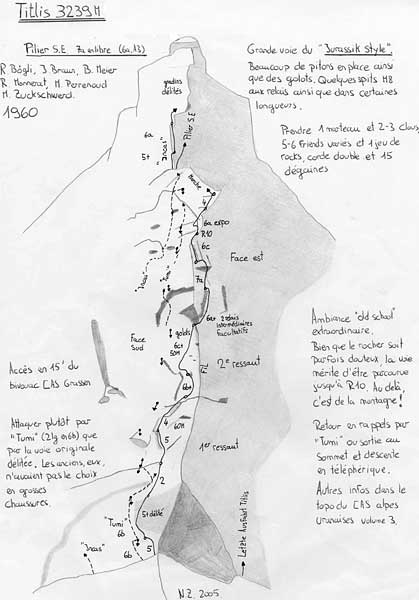 Titlis 3239M
Pilier S.E 7a enlibre (6a,A3)
R Bögli, J Braun, B. Meier
R Monnerat, M. Perrenoud
M. Zuckschwerd.
1960
Grande voie du "Jurassik Style".
Beaucoup de pitons en place ainsi
que des golots. Quelques spits M8
aux relais ainsi que dans certaines
longueurs.
Prendre 1 marteau et 2-3 clous,
5-6 friends variés et 1 jeu de
rocks, corde double et 15
dégaines
gradins
délités
6a
5+
"Incas"
Pilier S.E
4
6a expo
R.10
6c
7a
Face est
2 relais
intermédiaires
facultatifs
golots
6c+
50M
Face
Sud
2e ressaut
6b+
4
5
60M
1er ressaut
2
5+ délité
"Tumi"
6b
6b
5
"Incas"
Accès en 15' du
bivouac CAS Grassen
Attaquer plutôt par
"Tumi" (2lg en 6b) que
par la voie originale
délitée. Les anciens, eux,
n'avaient pas le choix
en grosses
chaussures.
Ambiance "old school"
extraordinaire.
Bien que le rocher soit
parfois douteux, la voie
mérite d'être parcourue
jusqu'à R.10. Au delà,
c'est de la montagne!
Retour en rappels par
"Tumi" ou sortie au
sommet et descente
en téléphérique.
Autres infos dans le
topo du CAS alpes
uranaises volume 3.
Letzte Ausfahrt Titlis
N.Z. 2005